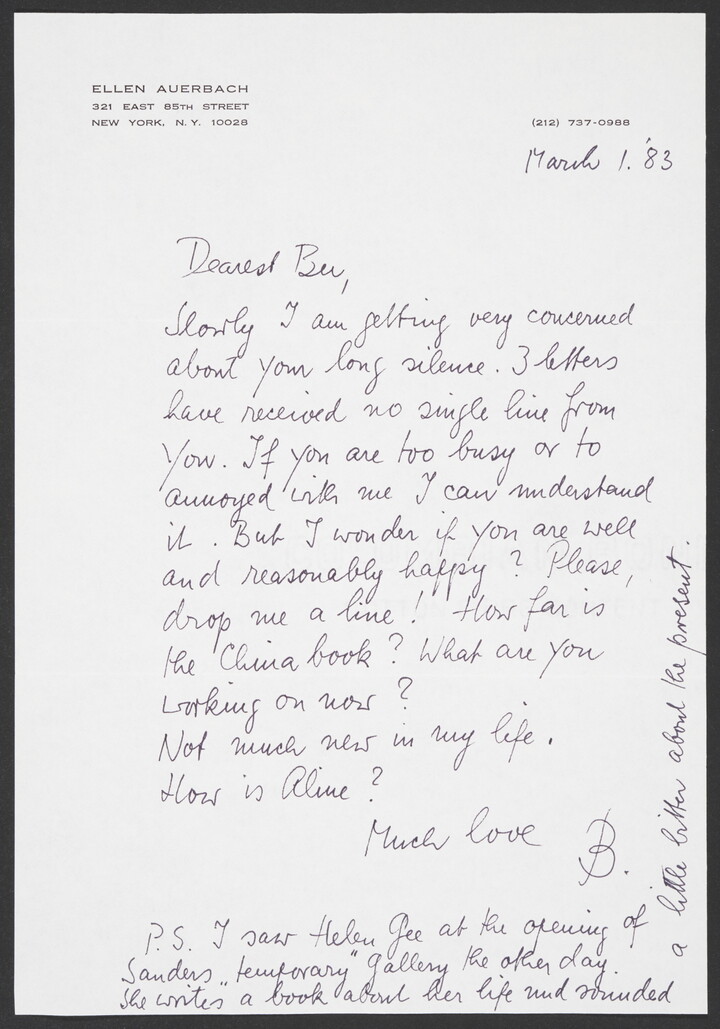 ELLEN AUERBACH
321 EAST 85TH STREET
NEW YORK, N. Y. 10028
(212) 737-0988
March 1. '83
Dearest Bee,
Slowly I am getting very concerned
about your long silence. 3 letters
have received no single line from
You. If you are too busy or to
annoyed with me I can understand
it. But I wonder if you are well
and reasonably happy? Please,
drop me a line! How far is
the China book? What are you
working on now?
Not much new in my life.
How is Aline?
Much love B.
P.S. I saw Helen Gee at the opening of
Sanders „temporary" Gallery the other day.
She writes a book about her life und sounded
a little bitter about the present.